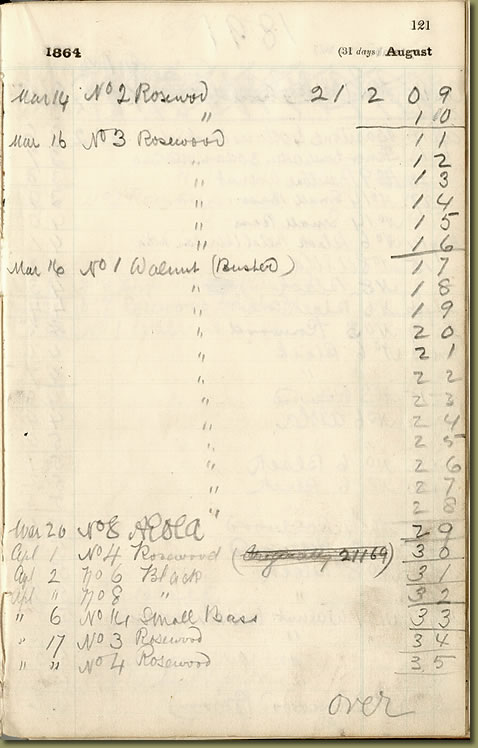 121
1864 (31 days) August
Mar 14 No 2 Rosewod 21 2 0 9
" 1 0
Mar 16 No 3 Rosewood 1 1
" 1 2
" 1 3
" 1 4
" 1 5
" 1 6
Mar 16 No 1 Walnut (Busted) 1 7
" 1 8
" 1 9
" 2 0
" 2 1
" 2 2
" 2 3
" 2 4
" 2 5
" 2 6
" 2 7
" 2 8
Mar 26 No 8 2 9
Apl 1 No 4 Rosewood (Originally 21169) 3 0
Apl 2 No 6 Black 3 1
Apl " No 8 " 3 2
" 6 No 14 Small Bass 3 3
" 17 No 3 Rosewood 3 4
" " No 4 Rosewood 3 5
over